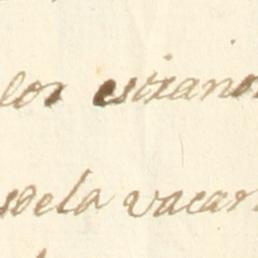 los estrano
dela vacan